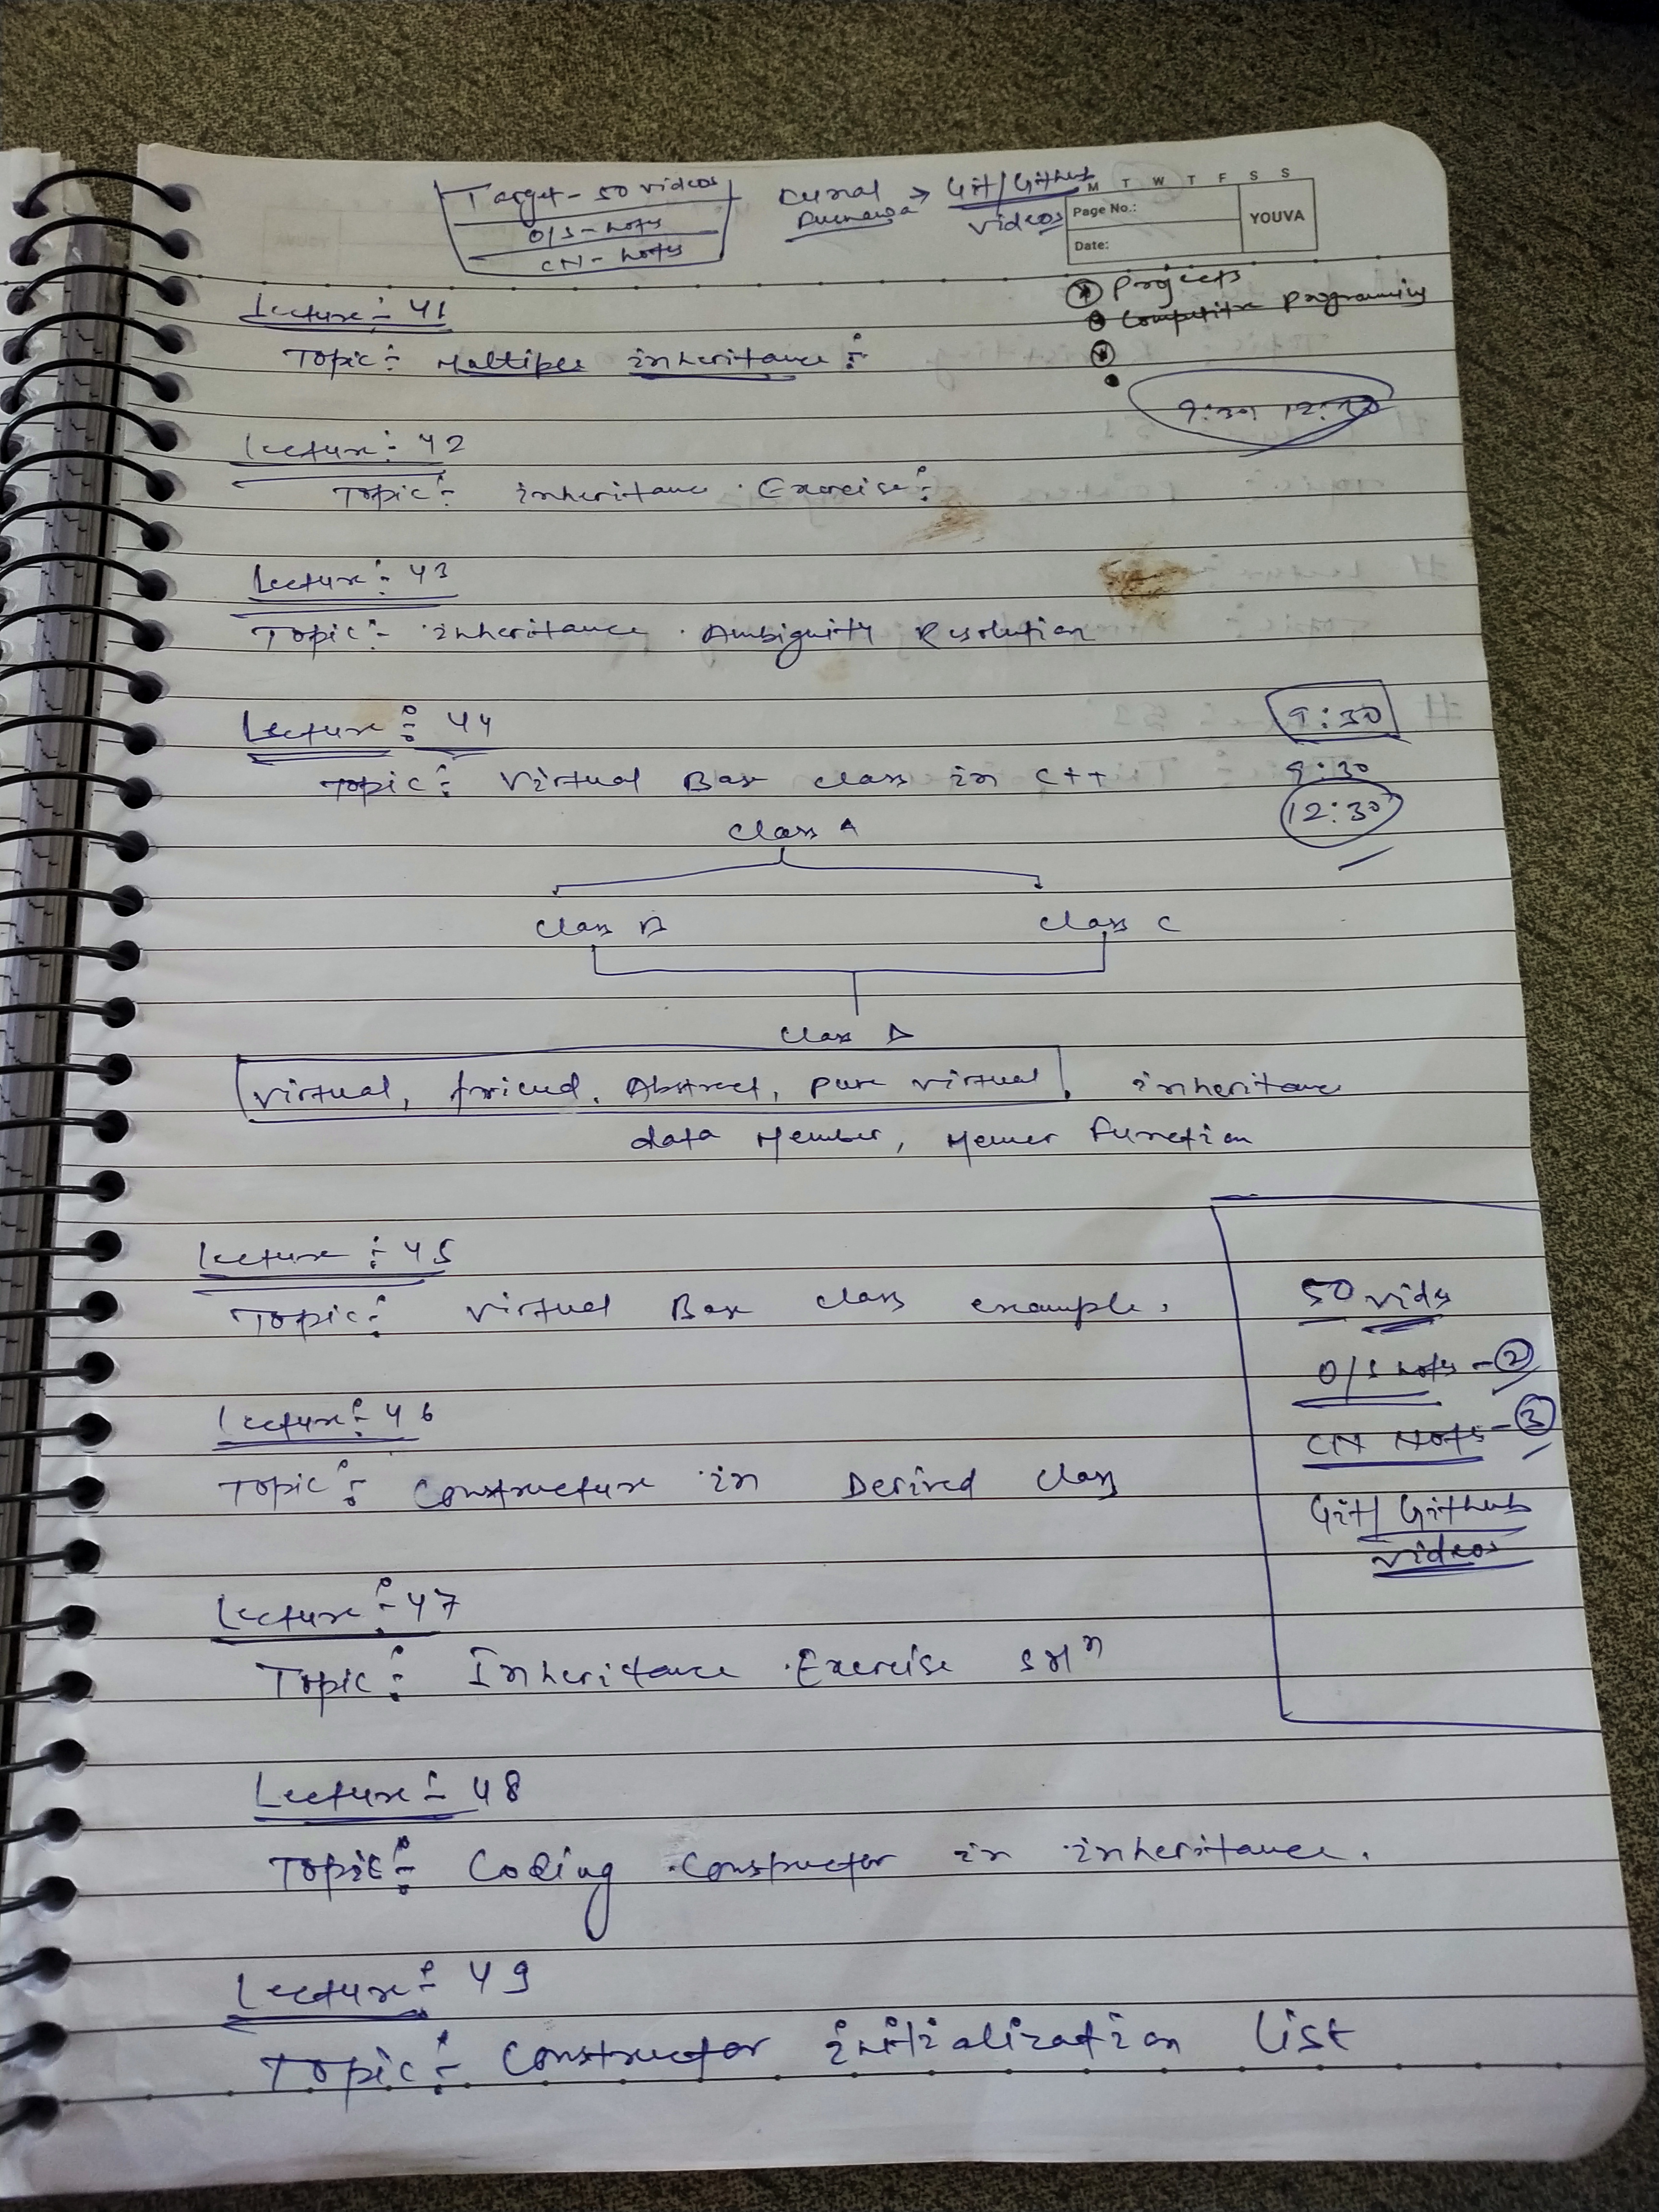 Target - 50 videos
O/S - notes
CN - notes
→ Git/Github
videos
M T W T F S S
Page No.:
Date:
YOUVA
Projects
Competitive Programming
Lecture :- 41
Topic :- Multiple inheritance :-
9:30 12:30
Lecture :- 42
Topic :- inheritance Exercise :-
Lecture :- 43
Topic :- inheritance Ambiguity Resolution
Lecture :- 44
9:30
Topic :- Virtual Base class in C++
9:30
12:30
Class A
Class B Class C
Class D
Virtual, friend, Abstract, pure virtual, inheritance
data Member, Memer Function
Lecture :- 45
Topic :- Virtual Base class example.
50 vids
O/S Nots - 2
Lecture :- 46
CN Nots - 3
Topic :- Constructure in Derived class
Git/Github
videos
Lecture :- 47
Topic :- Inheritance Exercise
Lecture :- 48
Topic :- Coding Constructor in inheritance.
Lecture :- 49
Topic :- Constructor initialization List